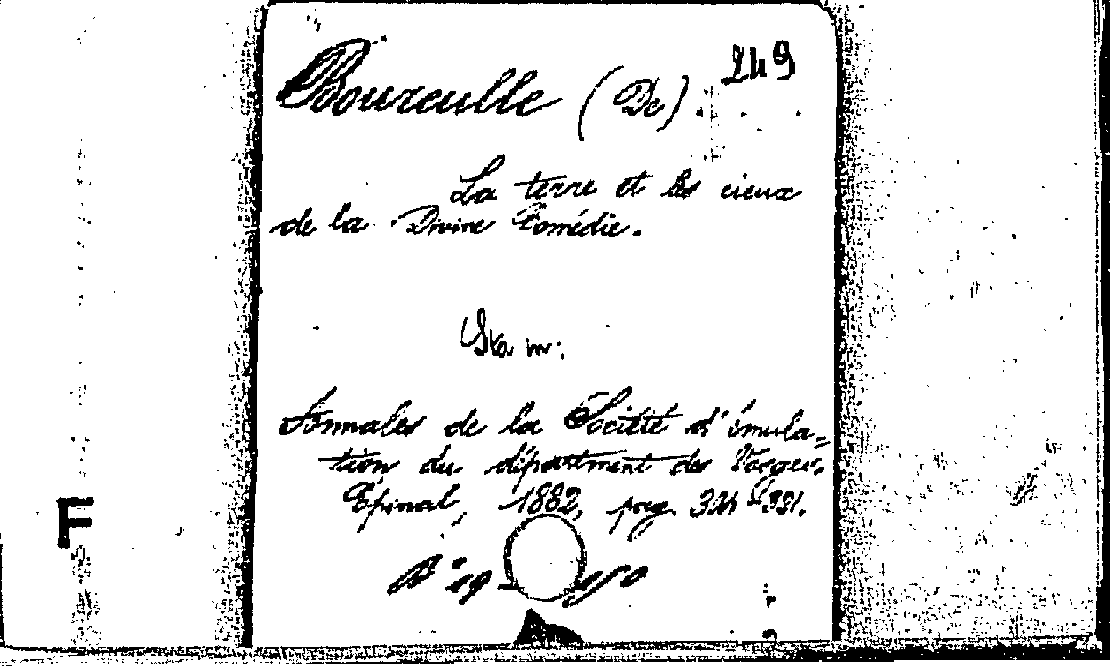 249
Boureulle (De).
La terre et les cieux
de la Divine Comédie.
Sta in:
Annales de la Société d'émula=
tion du département des Vosges.
Epinal, 1882, pag.
F